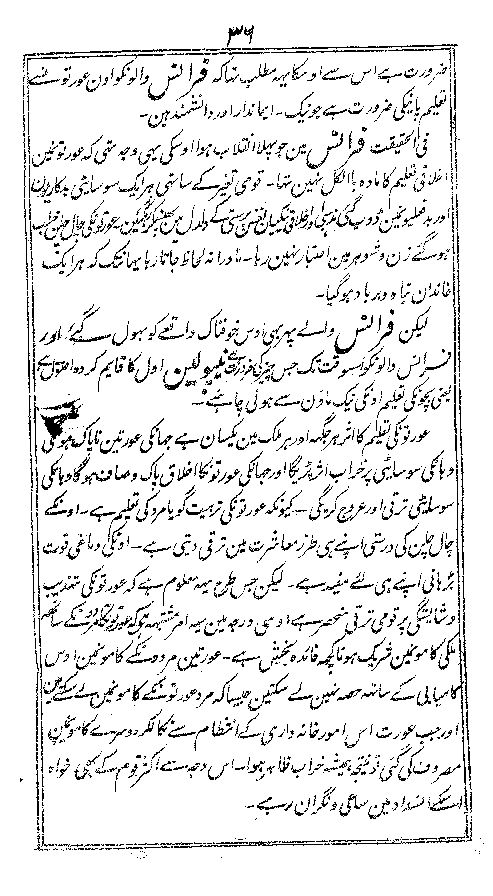 ۳۶
ضرورت ہے اس سے اوسکا یہہ مطلب تہا کہ فرانس والونکو اون عورتونسے
تعلیم پانیکی ضرورت ہے جو نیک۔ ایماندار اور دانشمند ہین۔
فی الحقیقت فرانس مین جو پہلا انقلاب ہوا اوسکی یہی وجہ تہی کہ عورتونمین
اخلاقی تعلیم کا مادہ بالکل نہین تہا۔ قومی تغیر کے ساتہی ہر ایک سوسایٹی بدکاریون
اور بدفعلیونمین ڈوب گئی نیکیان نفس پرستی کے دلدل مین عورتونکی چال چلن خراب
ہو گئے زن و شوہر مین اعتبار نہین رہا۔ مادرانہ لحاظ جاتا رہا یہانتک کہ ہر ایک
خاندان تباہ و برباد ہو گیا۔
لیکن فرانس والے پہر بہی اوس خوفناک واقعے کو بہول گئے اور
فرانس والونکو اسوقت تک جس چیز کی ضرورت ہے نپولین اول کا قایم کردہ اصول ہے
یعنی بچونکی تعلیم اونکی نیک ماؤن سے ہونی چاہئے۔
عورتونکی تعلیم کا اثر ہر جگہہ اور ہر ملک مین یکسان ہے جہانکی عورتین ناپاک ہونگی
وہانکی سوسایٹی پر خراب اثر پڑیگا اور جہانکی عورتونکا اخلاق پاک و صاف ہوگا وہانکی
سوسایٹی ترقی اور عروج کریگی۔ کیونکہ عورتونکی تربیت گویا مرد کی تعلیم ہے۔ اونکے
چال چلن کی درستی اپنے ہی طرز معاشرت مین ترقی دیتی ہے۔ اونکی دماغی قوت
بڑہانی اپنے ہی لئے مفید ہے۔ لیکن جس طرح یہہ معلوم ہے کہ عورتونکی تہذیب
و شایستگی پر قومی ترقی منحصر ہے اوسی درجہ مین یہہ امر مشتبہ ہے کہ عورتونکا مردونکے ساتہہ
ملکی کامونمین شریک ہونا کچہہ فائدہ بخش ہے۔ عورتین مردونکے کامونمین اوس
کامیابی کے ساتہہ حصہ نہین لے سکتین جیسا کہ مرد عورتونکے کامونمین لے سکتے ہین
اور جب عورت اس امور خانہ داری کے انتظام سے نکالکر دوسرے کامونمین
مصروف کی گئی تو نتیجہ ہمیشہ خراب ظاہر ہوا۔ اس وجہ سے اکثر قوم کے بہی خواہ
اسکے انسداد مین ساعی و نگران رہے۔